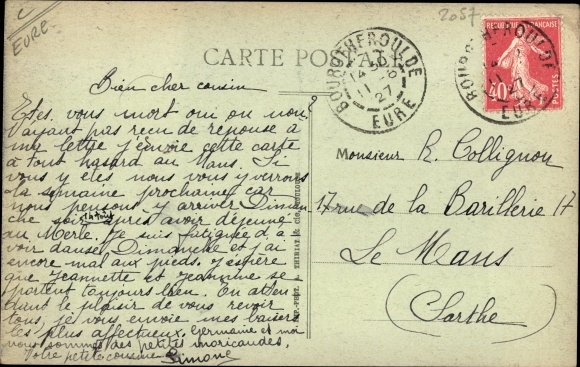 Eure
2057
CARTE POSTALE
BOURGTHEROULDE
EURE
14
11
27
REPUBLIQUE FRANÇAISE
40
POSTES
BOURGTHEROULDE
EURE
27
Bien cher cousin
Etes vous mort oui ou non?
N'ayant pas reçu de reponse à
ma lettre j'envoie cette carte
à tout hasard au Mans. Si
vous y etes nous vous y verrons
la semaine prochaine car
nous pensons y arriver Diman-
che soir après avoir dejeuné
au Merle. Je suis fatiguée d'a
voir dansé Dimanche et j'ai
encore mal aux pieds. J'espère
que Jeannette et Jeannine se
portent toujours bien. En atten
dant le plaisir de vous revoir
tous, je vous envoie mes baisers
les plus affectueux, Germaine et moi
nous sommes des petites moricaudes,
Votre petite cousine
Simone
Monsieur R. Collignon
17 rue de la Barillerie 17
Le Mans
(Sarthe)